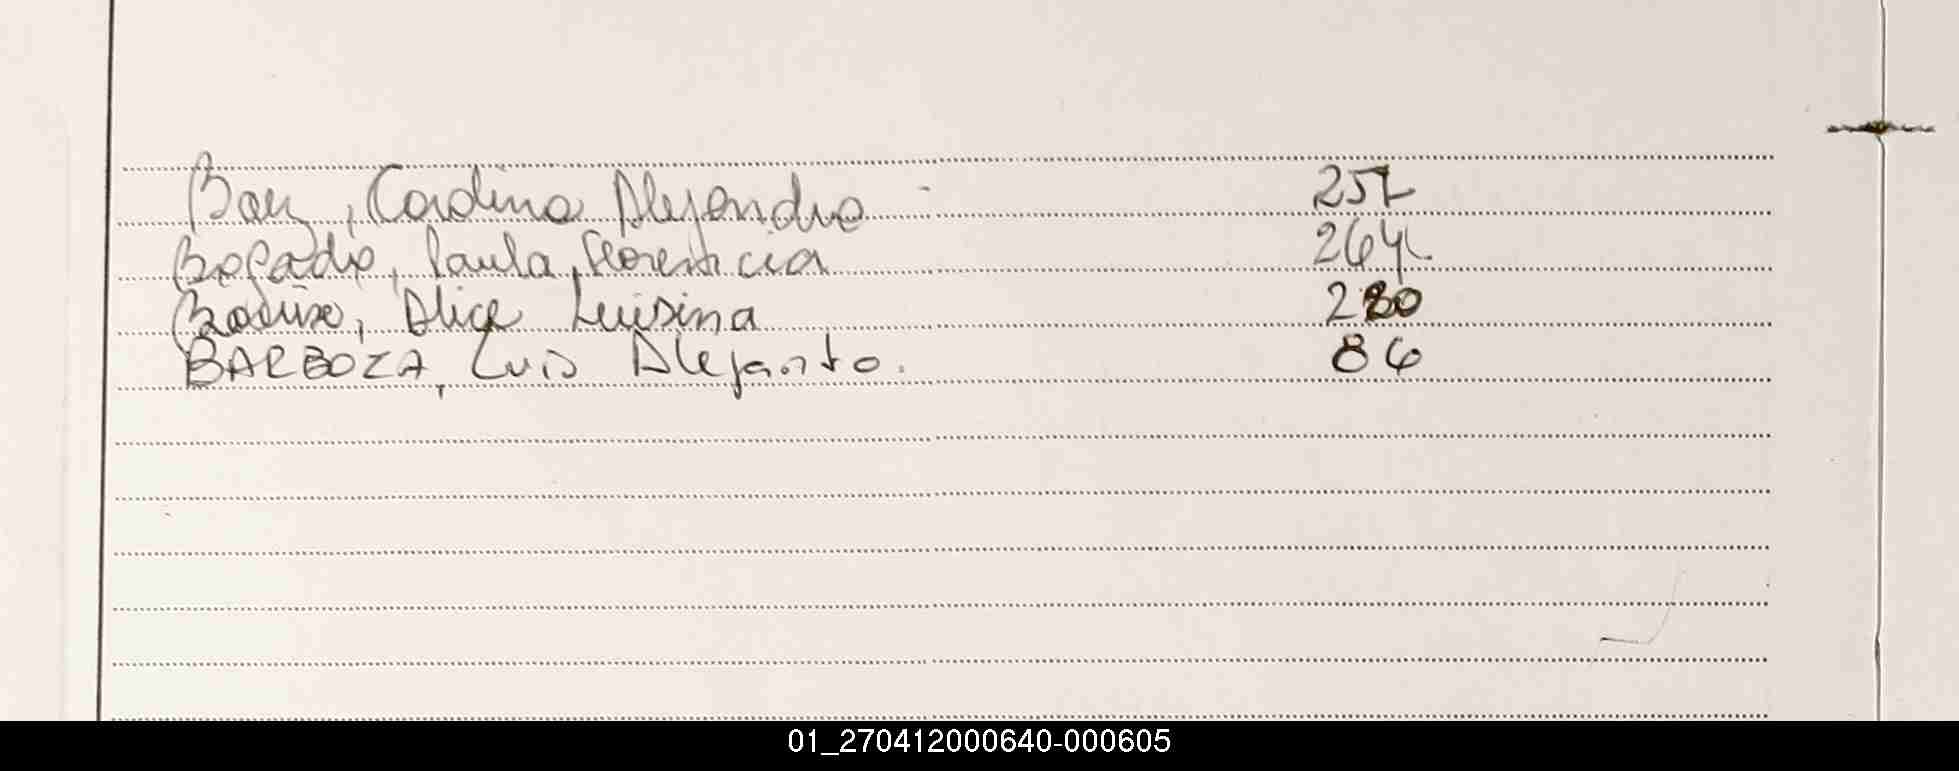 Baez, Carolina Alejandra - 257
Bogado, Paula, Florencia 264
Alice Luisina 280
BARBOZA, Luis Alejandro. 86
01_270412000640-000605